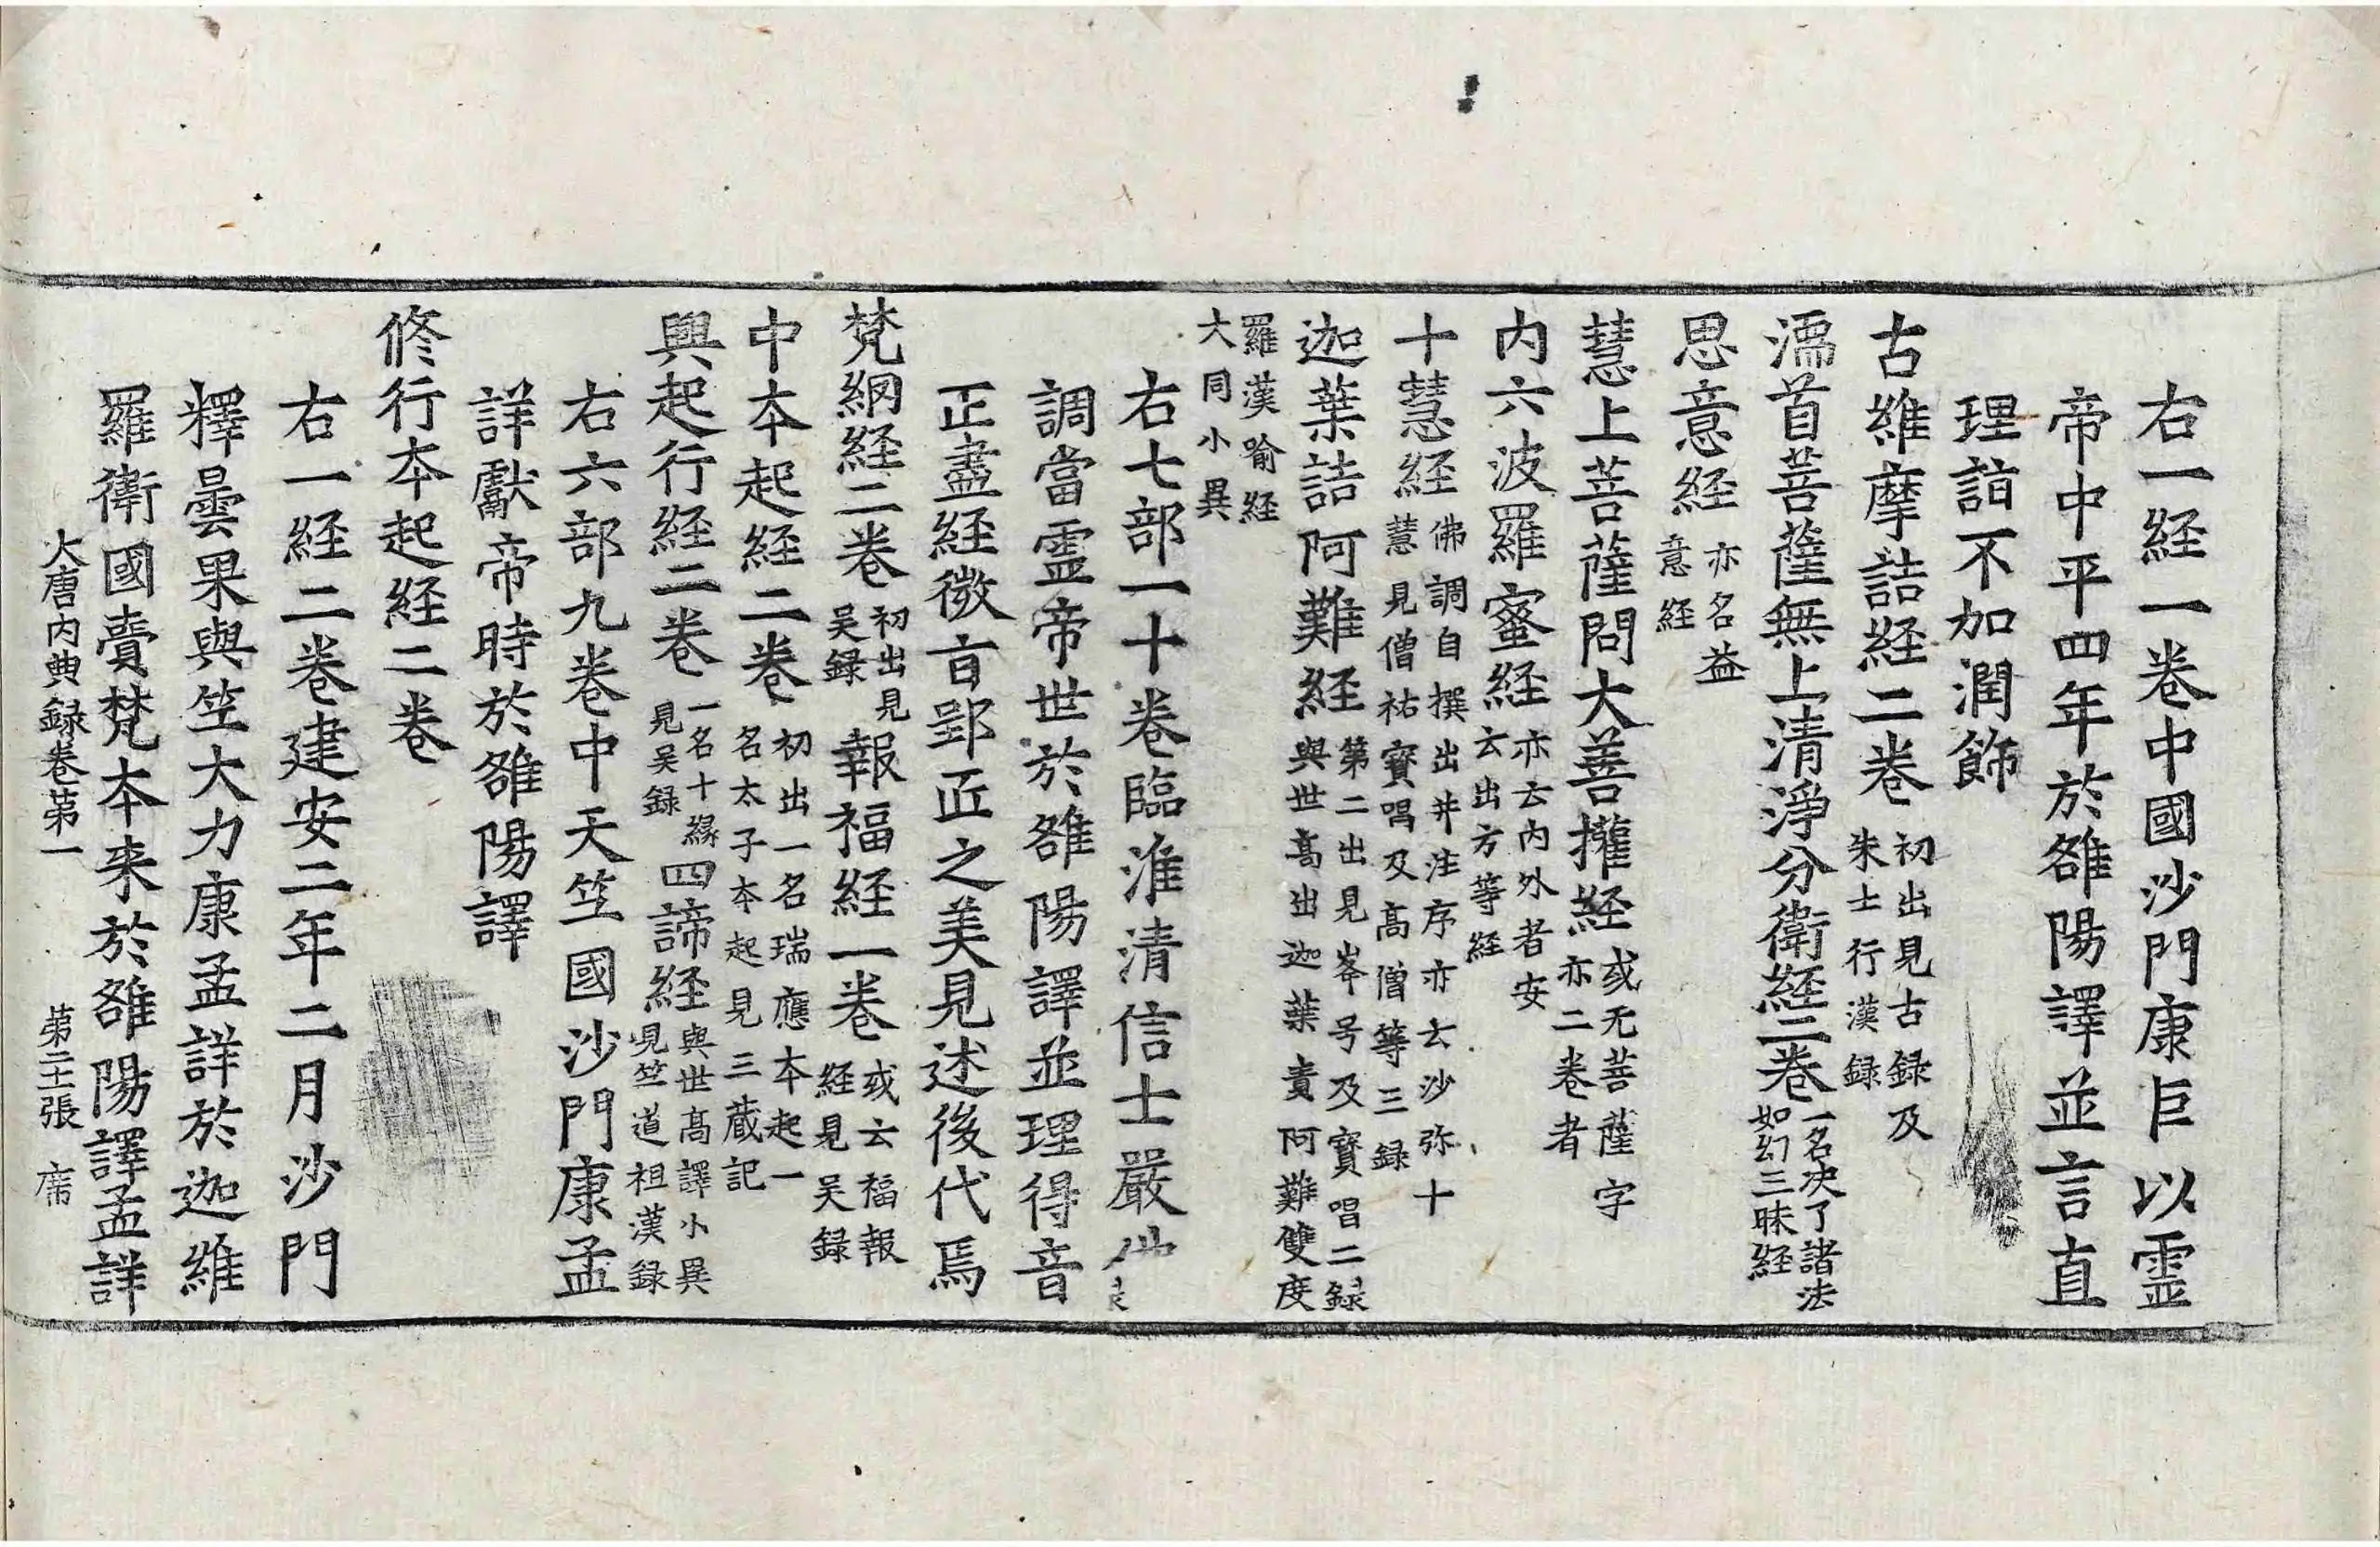 右一経一卷中國沙門康巨以霊
帝中平四年於雒陽譯並言直
理詣不加潤飾
古維摩詰経二卷初出見古録及朱士行漢録
濡首菩薩無上清淨分衛経二卷一名决了諸法如幻三昧経
思意経亦名益意経
慧上菩薩問大善攉経或无菩薩字亦二卷者
内六波羅蜜経亦云内外者安云出方等経
十慧経佛調自撰出并注序亦云沙弥十慧見僧祐寳唱及髙僧等三録
迦葉詰阿難経第二出見岑号及寳唱二録與世髙出迦葉責阿難雙度
羅漢喻経大同小異
右七部一十卷臨淮清信士嚴
調當霊帝世於雒陽譯並理得音
正盡経微旨郢匠之美見述後代焉
梵網経二卷初出見吴録報福経一卷或云福報経見吴録
中本起経二卷初出一名瑞應本起一名太子本起見三蔵記
興起行経二卷一名十縁見吴録四諦経與世髙譯小異見竺道祖漢録
右六部九卷中天竺國沙門康孟
詳獻帝時於雒陽譯
修行本起経二卷
右一経二卷建安二年二月沙門
釋曇果與竺大力康孟詳於迦維
羅衛國賷梵本来於雒陽譯孟詳
大唐内典録卷第一 第二十張 席